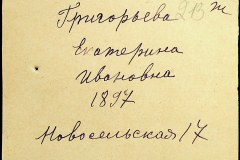 Григорьева ж
Екатерина
Ивановна
1897
Новосельская 17